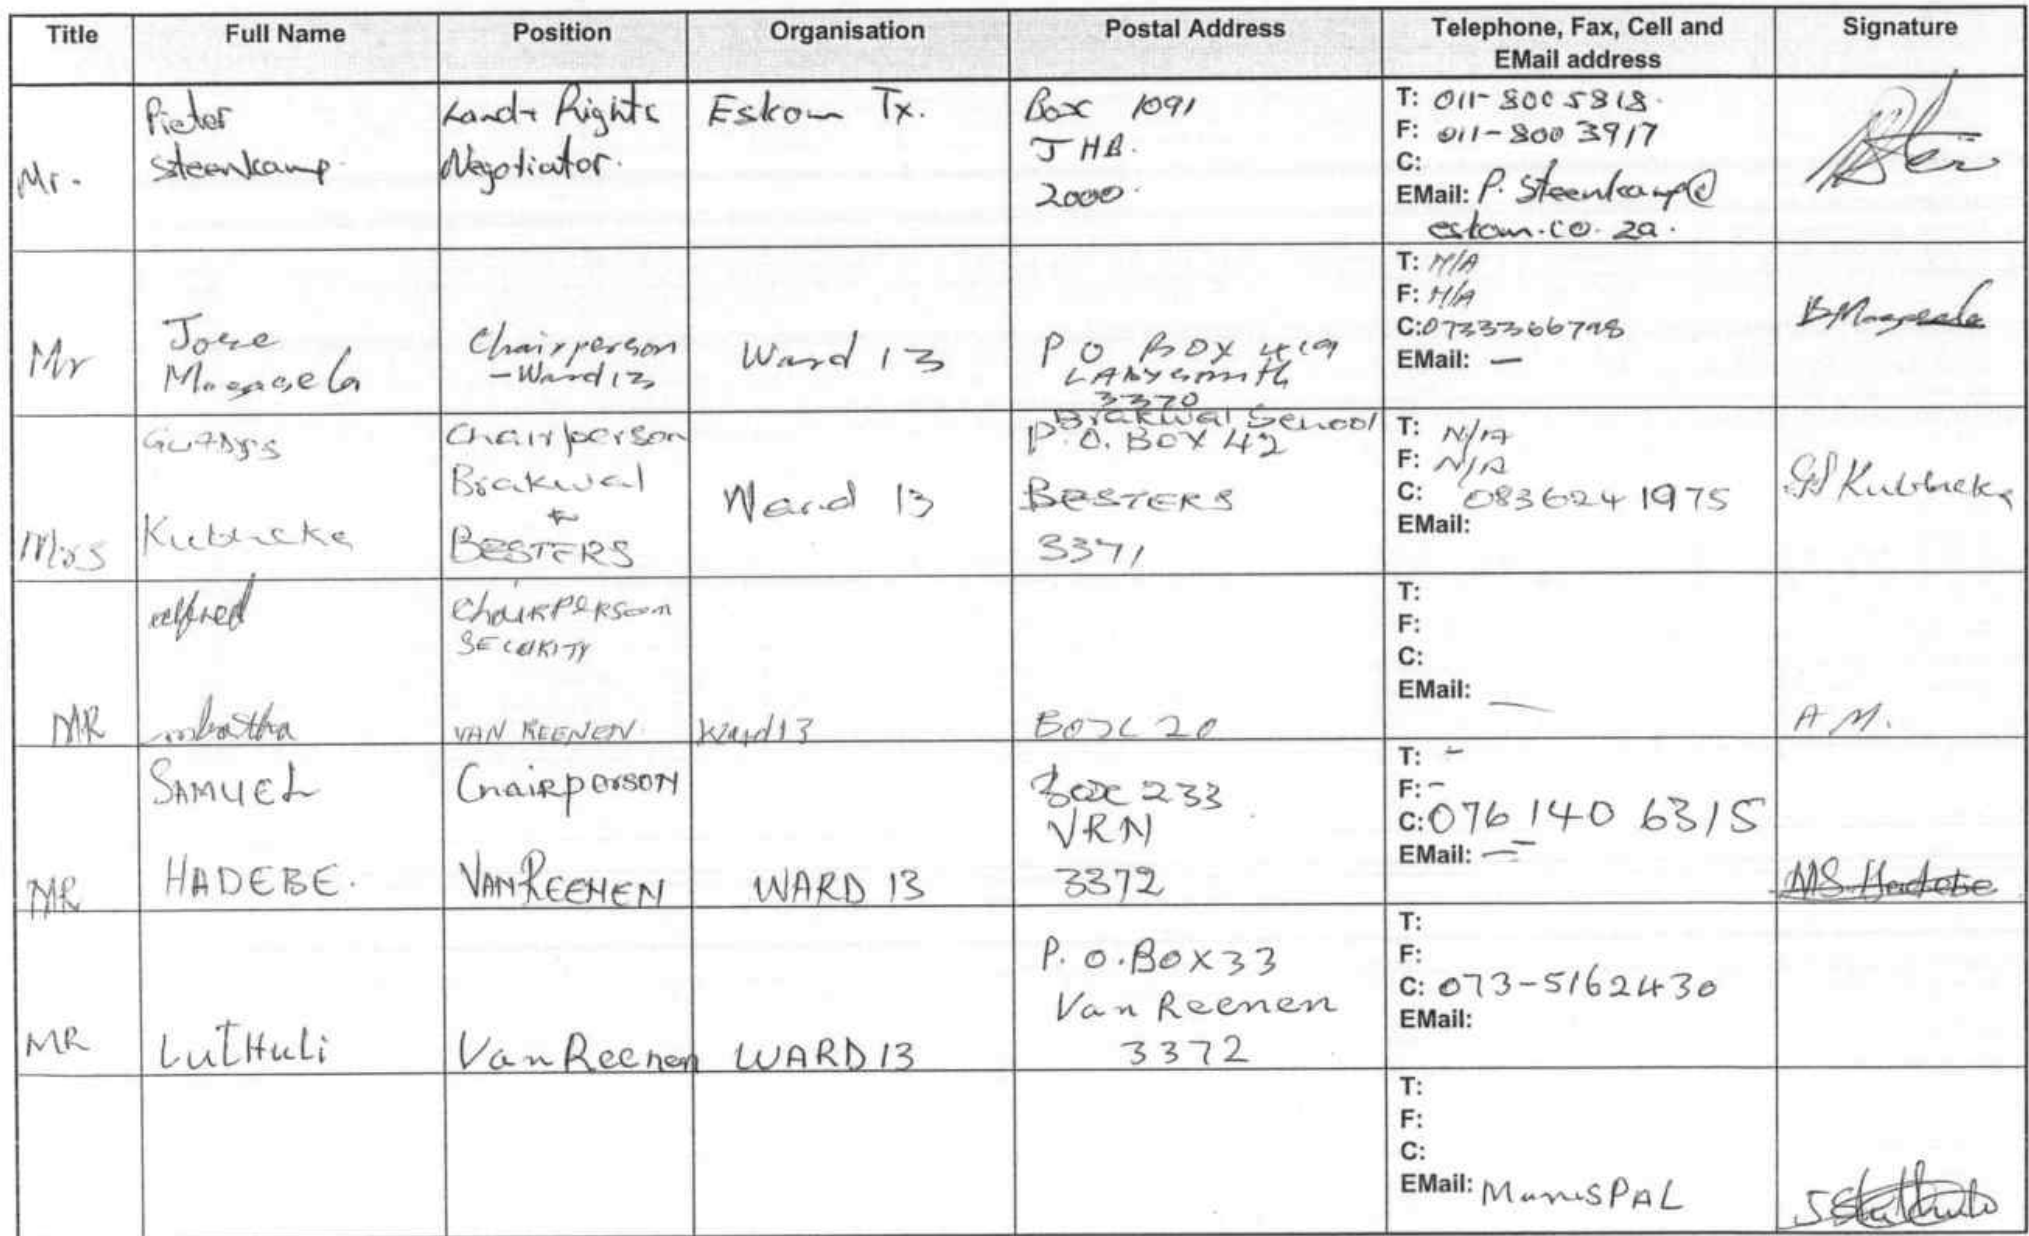 Title Full Name Position Organisation Postal Address Telephone, Fax, Cell and Signature
EMail address
Mr.
Pieter
Steenkamp.
Land & Rights
Negotiator.
Eskom Tx.
Box 1091
JHB.
2000.
T: 011-800 5818.
F: 011-800 3917
C:
EMail: P. Steenkamp@
eskom.co.za.
Mr
Chairperson
-Ward 13
Ward 13
P O BOX 419
LAdysmith
3370
T: N/A
F: N/A
C:0733366798
EMail: -
Mrs
Chairperson
Brakwal
&
BESTERS
Ward 13
Brakwal School
P.O. BOX 42
BESTERS
3371
T: N/A
F: N/A
C: 083624 1975
EMail:
MR
alfred
mbatha
ChairPERSon
SECURITY
VAN REENEN
Ward 13
BOX 20
T:
F:
C:
EMail: -
A M.
MR
SAMUEL
HADEBE.
ChaiRperson
VAN REENEN
WARD 13
Box 233
VRN
3372
T: -
F: -
C: 076 140 6315
EMail: -
MS Hadebe
MR
LutHuli
Van Reenen
WARD 13
P.O.BOX 33
Van Reenen
3372
T:
F:
C: 073-5162430
EMail:
T:
F:
C:
EMail: